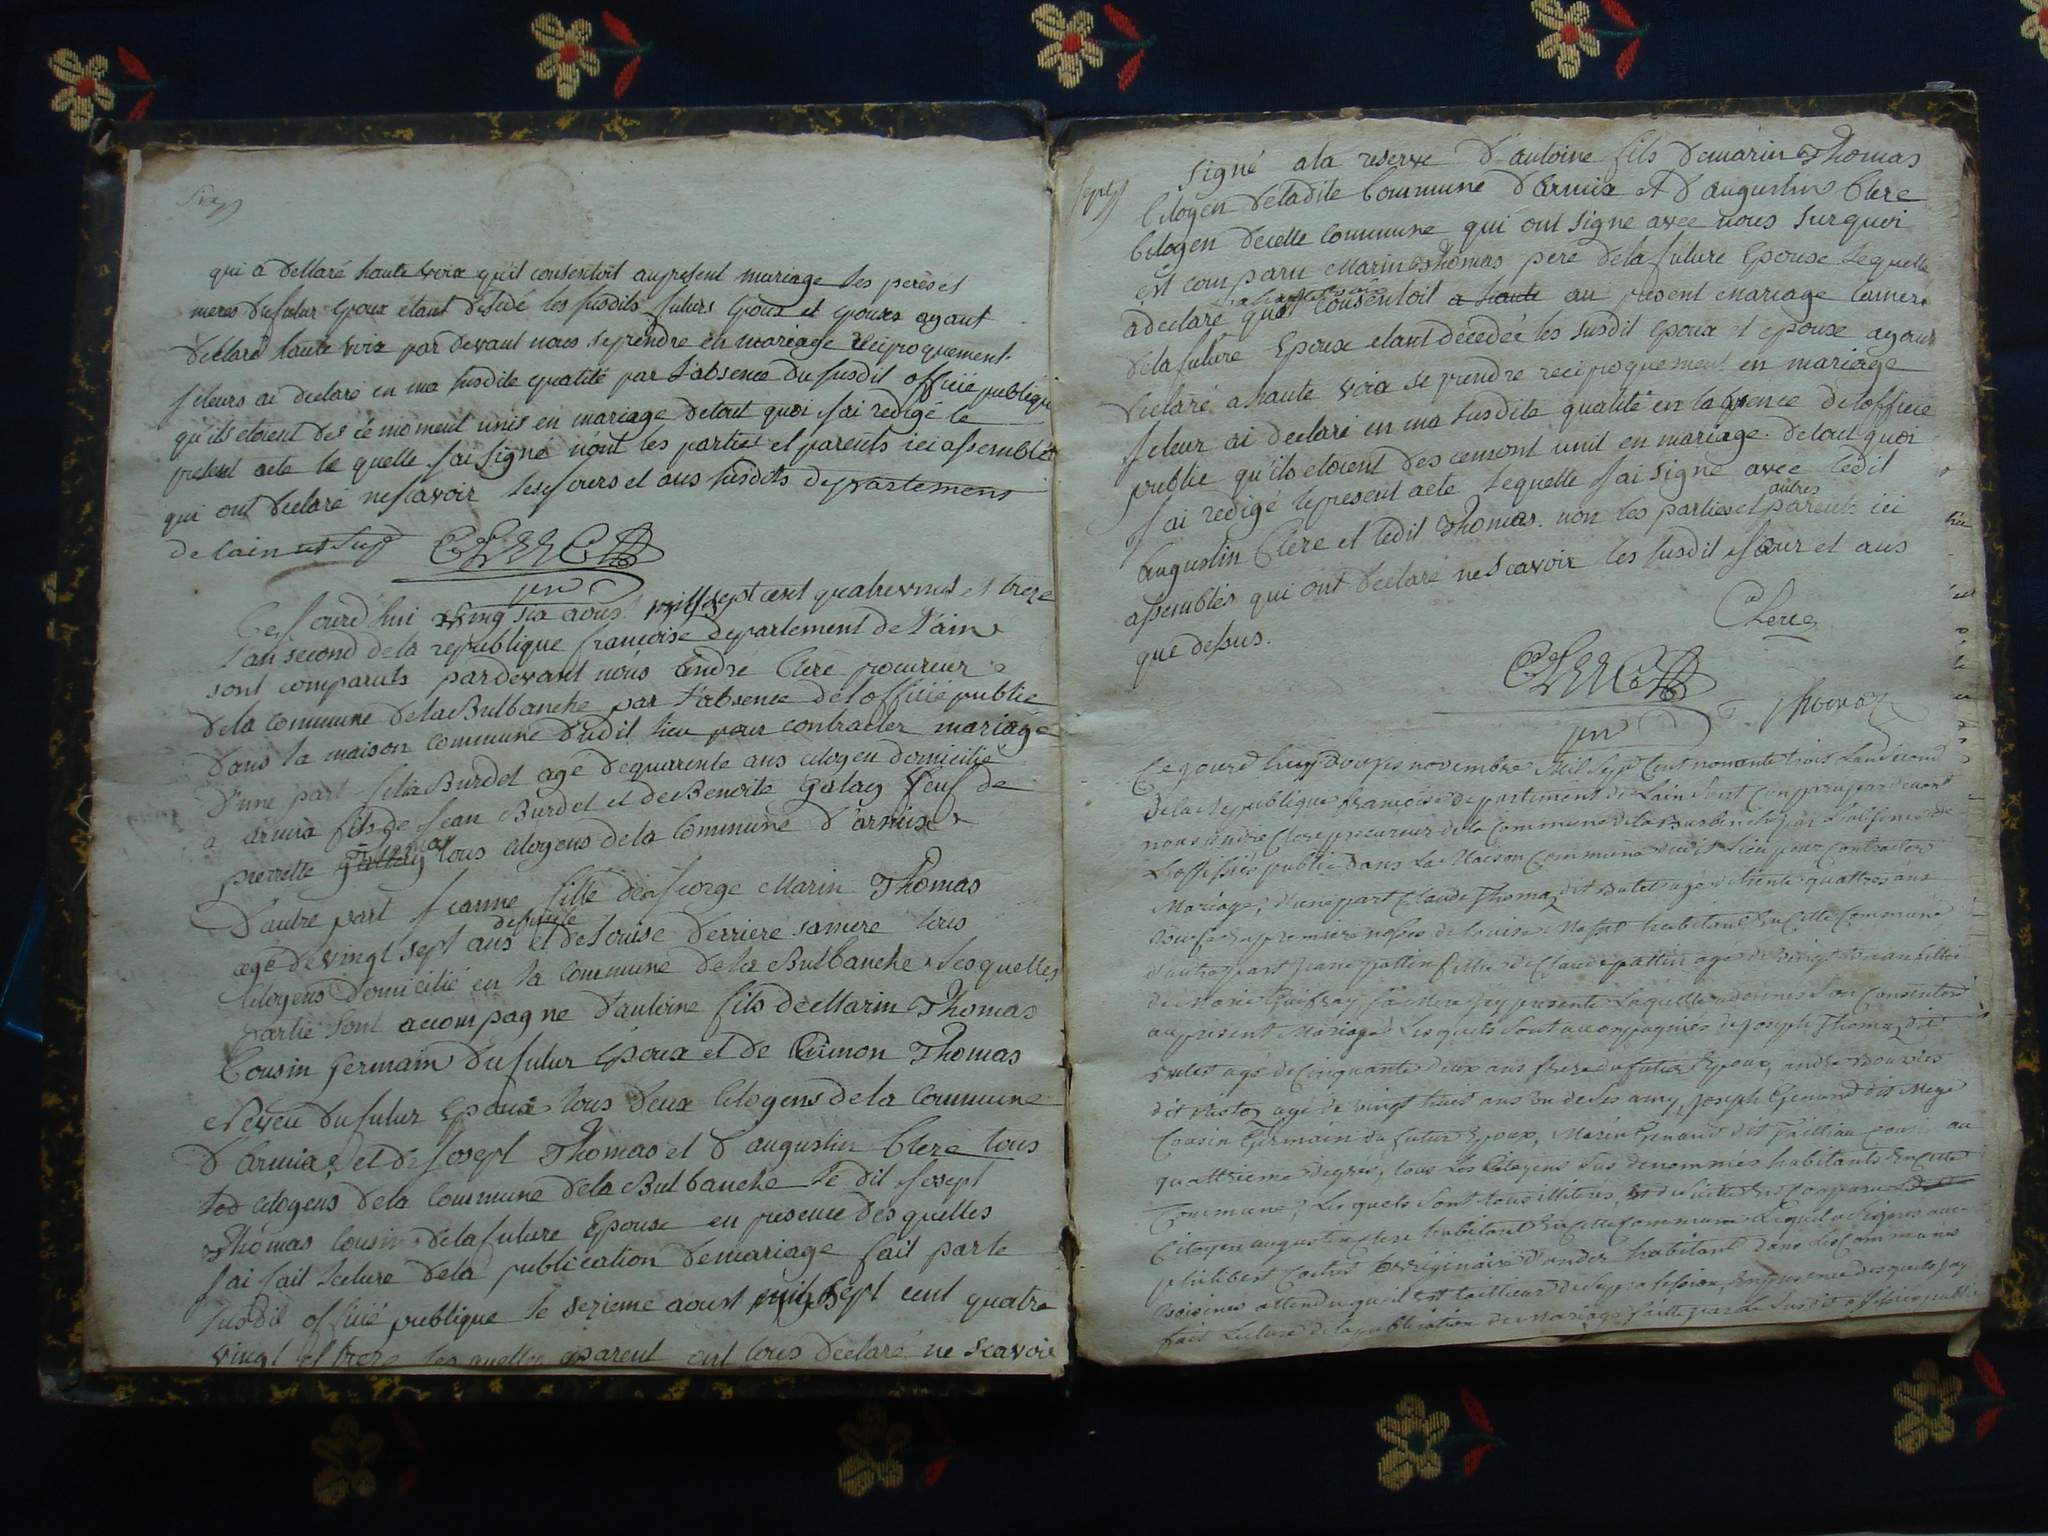 qui a declaré haute voix qu'il consentoit au present mariage les pères et
meres du futur Epoux étant décédé les susdits futurs Epoux et epouses ayant
declaré haute voix par devant nous se prendre en mariage réciproquement
ai declaré en ma susdite qualité par l'absence du susdit officié publique
qu'ils etoient des ce moment unis en mariage detout quoi jai redigé le
present acte le quelle jai signé non les parties et parents ici assemblés
qui ont declaré ne scavoir les jours et ans susdits departement
delain
CLERC
Cejourdhui vingt six aoust mille sept cent quatrevingt et treze
l'an second dela republique françoise departement de l'ain
sont comparuts pardevant nous André Clerc procureur
dela commune dela Bulbanche par l'absence del officié public
dans la maison commune dudit lieu pour contracter mariage
d'une part Burdet agé dequarente ans citoyen domicilié
a armix fils de Jean Burdet et de Benoite Veuf de
pierrette tous citoyens dela commune d'armix
d'autre part Jeanne fille de George Marin Thomas
agé de vingt sept ans et de defunte Louise Derriere samere tous
Citoyens domicilié en la commune dela Bulbanche lesquelles
partie sont accompagne d'antoine fils de Marin Thomas
Cousin germain du futur Epoux et de Thomas
Neveu du futur Epoux tous deux Citoyens dela commune
d'armix, et de Joseph Thomas et d'augustin Clere tous
citoyens dela commune dela Bulbanche le dit Joseph
Thomas cousin dela future Epouse en presence des quelles
jai fait lecture dela publication demariage fait par le
susdit officié publique le sezieme aoust mil sept cent quatre
vingt et treze les quelles parent ont tous declaré ne scavoir
signé ala reserve d'antoine fils demarin Thomas
Citoyen deladite Commune d'armix et d'augustin Clere
Citoyen decelle commune qui ont signé avec nous surquoi
est comparu Marin Thomas pere dela future Epouse lequelle
a declaré quil consentoit a haute au present mariage lamere
dela future Epouse etant décedée les susdit epoux et epouse ayant
declaré a haute voix se prendre reciproquement en mariage
ai declaré en ma susdite qualité en labsence delofficié
public qu'ils etoient des cemoment unit en mariage. detout quoi
j'ai redigé lepresent acte lequelle jai signé avec ledit
augustin Clere et ledit Thomas. non les parties et autres parents ici
assemblés qui ont declaré ne scavoir les susdit jour et ans
que dessus.
Clerc
CLERC
Thomas
Cejourd'huy novembre Mil Sept Cent nonante trois Lan second
dela Republique françoise departement de Lain sont comparu par devant
nous andré Clere procureur dela Commune dela Burbanche par Labsence de
Loffisiés public dans La Maison Commune dudit Lieu pour Contracter
Mariage, d'une part Claude Thomas dit agé de trente quattres ans
en premiere nopce de Louise habitant en Cette Commune
d'autre part Jeanne pattin fille de Claude pattin agé de
de Marie sa Mere icy presente Laquelle a donnes son Consentement
au present Mariage Lesquels sont accompagnés de Joseph Thomas dit
agé de Cinquante deux ans frere du futur Epoux, andré
dit agé de vingt huit ans un de ses amy, Joseph Genand dit
Cousin Germain du futur Epoux, Marin Genand dit Cousin au
quattrieme degrés, tous Les Citoyens sus denommés habitants en Cette
Commune, Lesquels sont tous illiteres,
Citoyen augustin Clere habitant en Cette Commune Lequel a signés avec
philibert originaire d'andert habitant dans Les Communes
voisines attendu qu'il est tailleur de sa profession, En presence desquels jay
fait Lecture de la publication de Mariage faitte par Le Susdit offisié public